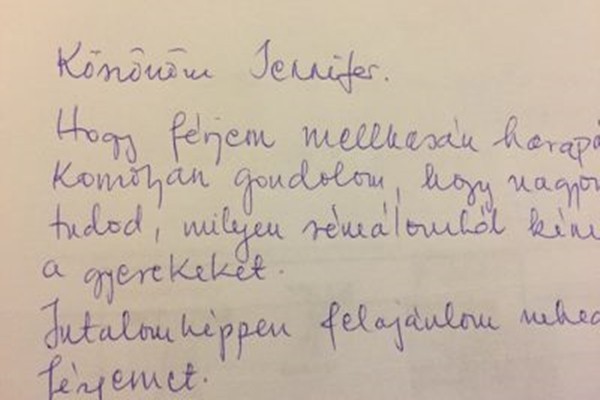 Köszönöm Jennifer.
Hogy férjem mellkasán harapá
Komolyan gondolom, hogy nagyon
tudod, milyen rémálomból kím
a gyerekeket.
Jutalomképpen felajánlom neked
férjemet.